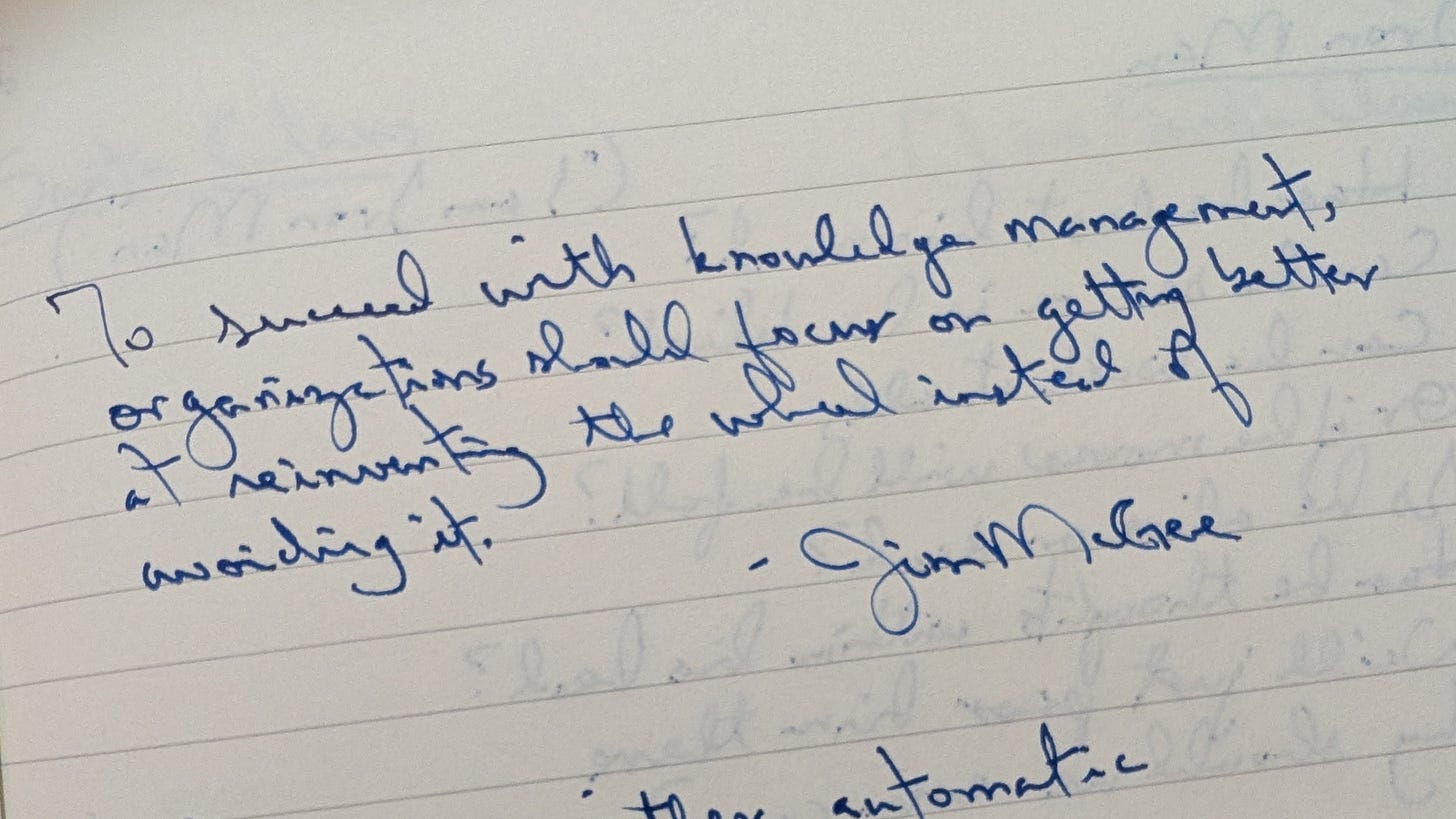 To succeed with knowledge management,
organizations should focus on getting better
at reinventing the wheel instead of
avoiding it.
- Jim McGee
automatic